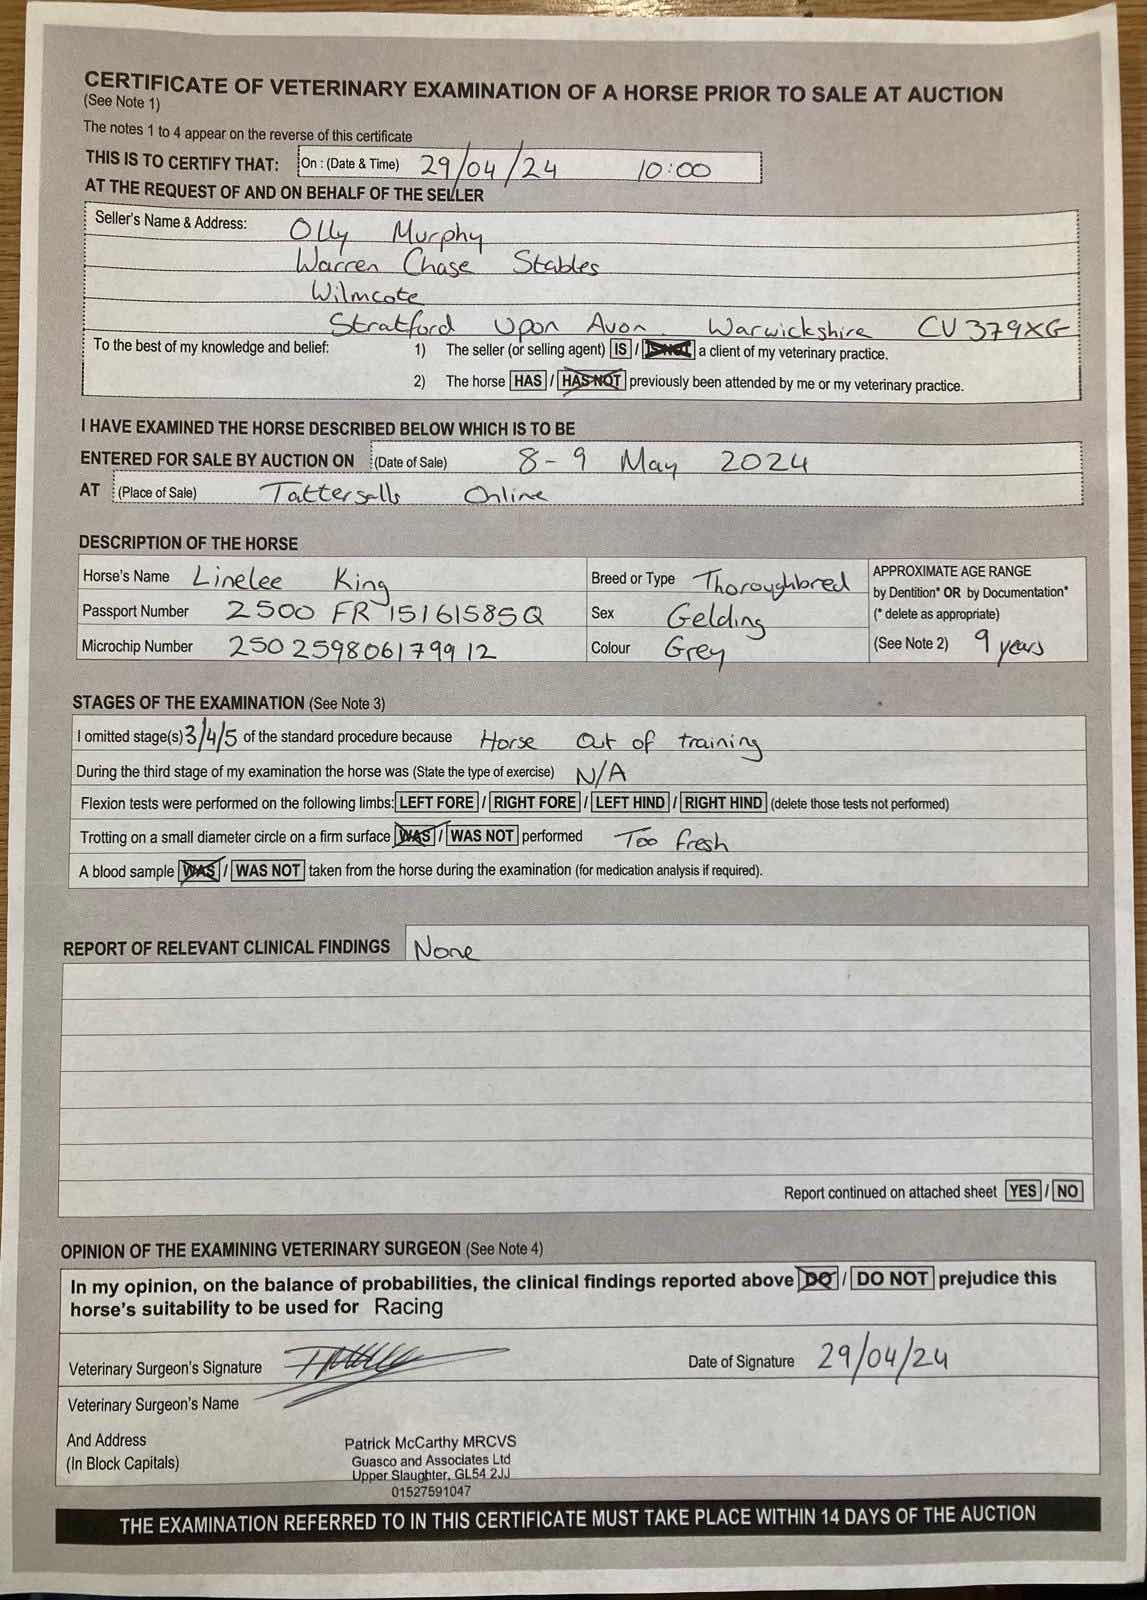 CERTIFICATE OF VETERINARY EXAMINATION OF A HORSE PRIOR TO SALE AT AUCTION
(See Note 1)
The notes 1 to 4 appear on the reverse of this certificate
THIS IS TO CERTIFY THAT: On : (Date & Time) 29/04/24 10:00
AT THE REQUEST OF AND ON BEHALF OF THE SELLER
Seller's Name & Address: Olly Murphy
Warren Chase Stables
Wilmcote
Stratford Upon Avon. Warwickshire CV379XG
To the best of my knowledge and belief: 1) The seller (or selling agent) IS / IS NOT a client of my veterinary practice.
2) The horse HAS / HAS NOT previously been attended by me or my veterinary practice.
I HAVE EXAMINED THE HORSE DESCRIBED BELOW WHICH IS TO BE
ENTERED FOR SALE BY AUCTION ON (Date of Sale) 8-9 May 2024
AT (Place of Sale) Tattersalls Online
DESCRIPTION OF THE HORSE
Horse's Name Linelee King Breed or Type Thoroughbred APPROXIMATE AGE RANGE
by Dentition* OR by Documentation*
Passport Number 2500 FR 15161585Q Sex Gelding (* delete as appropriate)
Microchip Number 250259806179912 Colour Grey (See Note 2) 9 years
STAGES OF THE EXAMINATION (See Note 3)
I omitted stage(s) 3/4/5 of the standard procedure because Horse Out of training
During the third stage of my examination the horse was (State the type of exercise) N/A
Flexion tests were performed on the following limbs: LEFT FORE / RIGHT FORE / LEFT HIND / RIGHT HIND (delete those tests not performed)
Trotting on a small diameter circle on a firm surface WAS / WAS NOT performed Too fresh
A blood sample WAS / WAS NOT taken from the horse during the examination (for medication analysis if required).
REPORT OF RELEVANT CLINICAL FINDINGS None
Report continued on attached sheet YES / NO
OPINION OF THE EXAMINING VETERINARY SURGEON (See Note 4)
In my opinion, on the balance of probabilities, the clinical findings reported above DO / DO NOT prejudice this
horse's suitability to be used for Racing
Veterinary Surgeon's Signature Date of Signature 29/04/24
Veterinary Surgeon's Name
And Address
(In Block Capitals)
Patrick McCarthy MRCVS
Guasco and Associates Ltd
Upper Slaughter, GL54 2JJ
01527591047
THE EXAMINATION REFERRED TO IN THIS CERTIFICATE MUST TAKE PLACE WITHIN 14 DAYS OF THE AUCTION